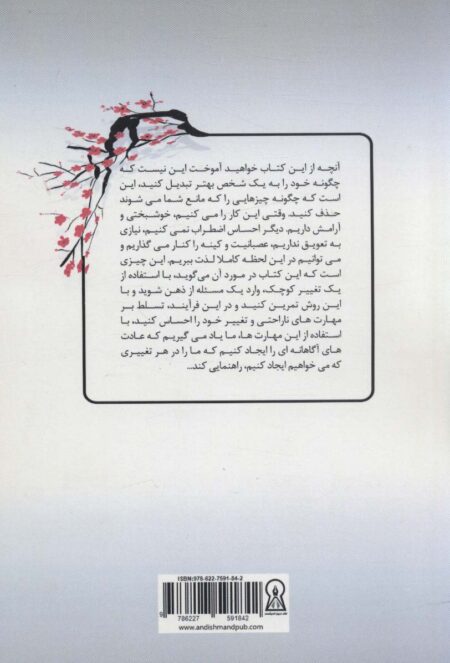 آنچه از این کتاب خواهید آموخت این نیست که
چگونه خود را به یک شخص بهتر تبدیل کنید، این
است که چگونه چیزهایی را که مانع شما می شوند
حذف کنید. وقتی این کار را می کنیم، خوشبختی و
آرامش داریم. دیگر احساس اضطراب نمی کنیم، نیازی
به تعویق نداریم، عصبانیت و کینه را کنار می گذاریم و
می توانیم در این لحظه کاملا لذت ببریم. این چیزی
است که این کتاب در مورد آن می‌گوید، با استفاده از
یک تغییر کوچک، وارد یک مسئله از ذهن شوید و با
این روش تمرین کنید و در این فرآیند، تسلط بر
مهارت های ناراحتی و تغییر خود را احساس کنید، با
استفاده از این مهارت ها، ما یاد می گیریم که عادت
های آگاهانه ای را ایجاد کنیم که ما را در هر تغییری
که می خواهیم ایجاد کنیم، راهنمایی کند...
ISBN:978-622-7591-84-2
9 786227 591842
www.andishmandpub.com